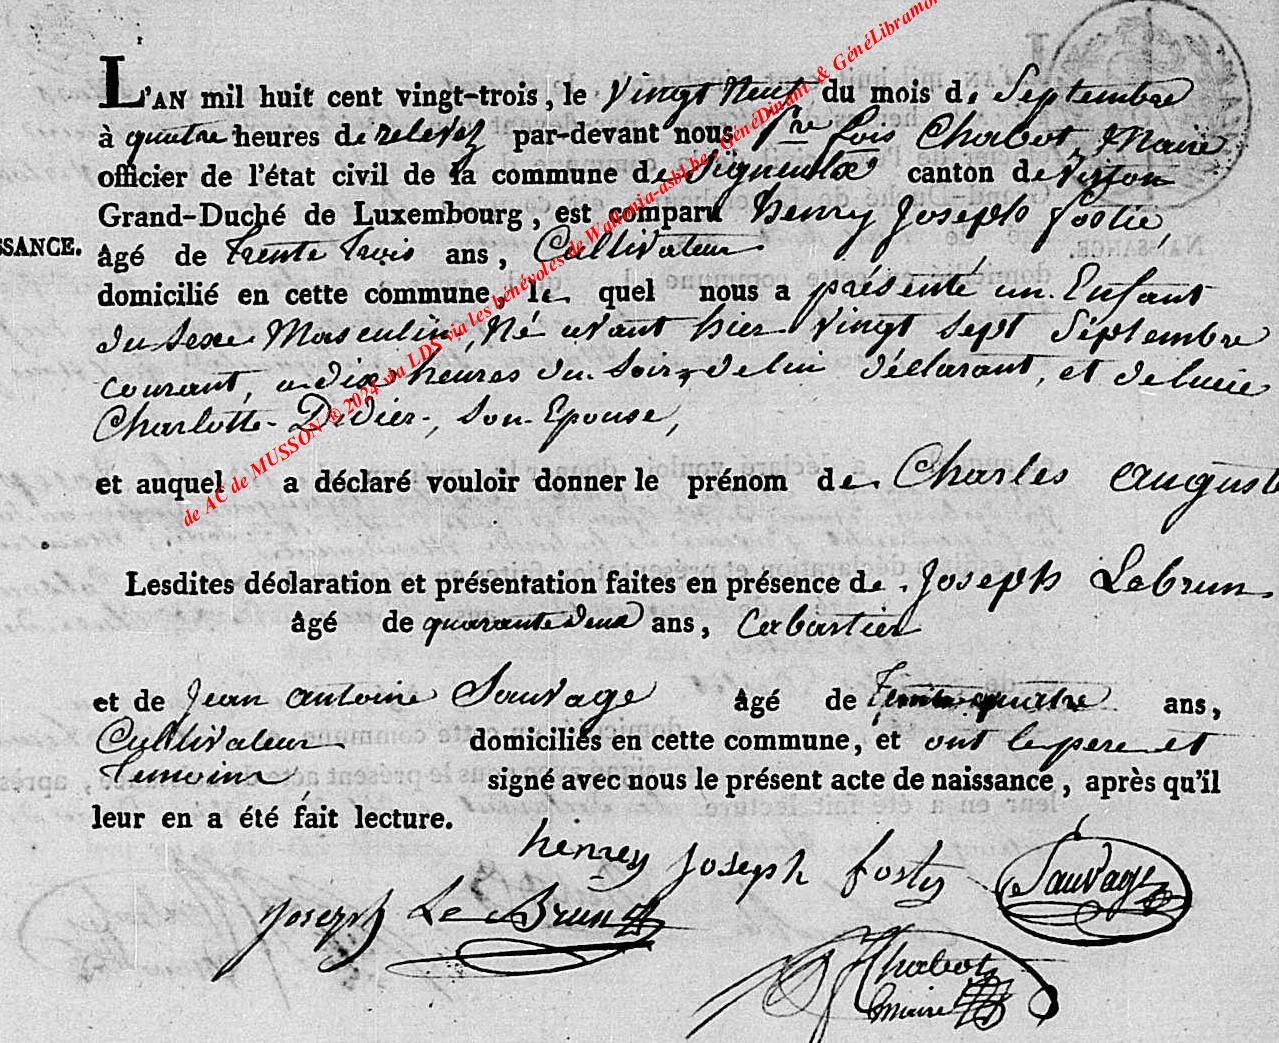 L'AN mil huit cent vingt-trois, le Vingt Neuf du mois de Septembre
à quatre heures de relevez par-devant nous Fre. fois Chabot, Maire
officier de l'état civil de la commune de Signeulx canton de Virton
Grand-Duché de Luxembourg, est comparu henry Joseph fostie,
SSANCE.
âgé de trente trois ans, Cultivateur
domicilié en cette commune, le quel nous a présenté un Enfant
du sexe Masculin, Né avant hier vingt sept Septembre
courant, a dix heures du Soir, de lui déclarant, et de lucie
Charlotte Didier, Son Epouse,
et auquel a déclaré vouloir donner le prénom de Charles auguste
Lesdites déclaration et présentation faites en présence de Joseph Lebrun
âgé de quarante deux ans, Cabartier
et de Jean antoine Sauvage âgé de quatre ans,
Cultivateur domiciliés en cette commune, et ont le pere et
temoins signé avec nous le présent acte de naissance, après qu'il
leur en a été fait lecture.
henry Joseph fosty Sauvage
Joseph Le Brun
Chabot
maire
de AC de MUSSON ® 2024 via LDS via les bénévoles de Wallonia-asbl.be - GénéDinant & GénéLibramo